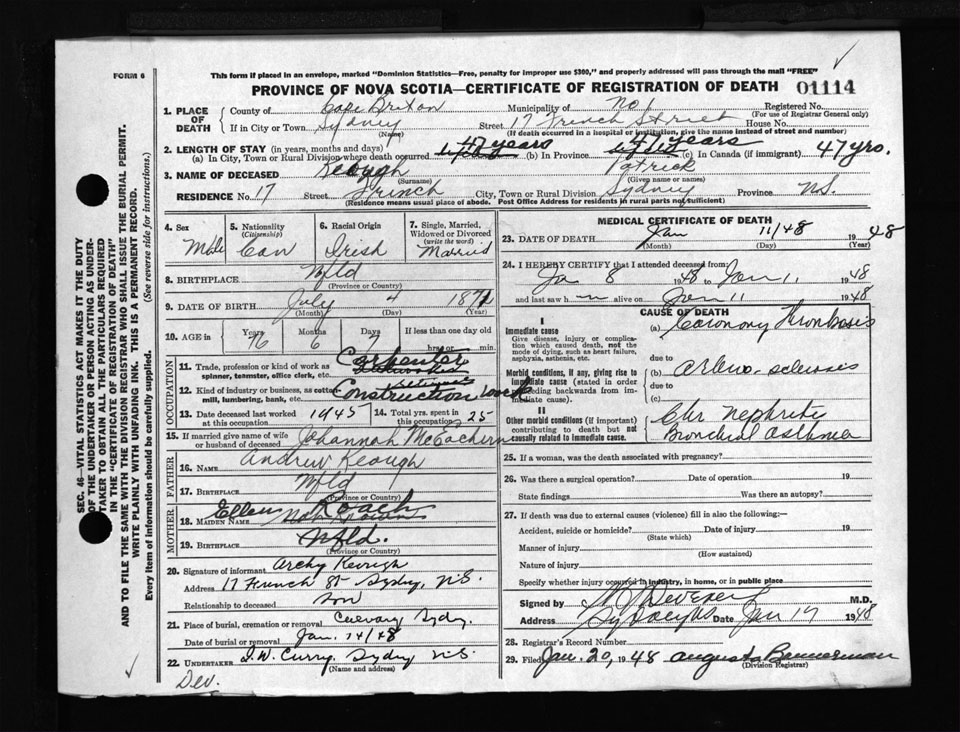 FORM 6
This form if placed in an envelope, marked "Dominion Statistics—Free, penalty for improper use $300," and properly addressed will pass through the mail "FREE"
PROVINCE OF NOVA SCOTIA—CERTIFICATE OF REGISTRATION OF DEATH 01114
SEC. 46—VITAL STATISTICS ACT MAKES IT THE DUTY
OF THE UNDERTAKER OR PERSON ACTING AS UNDER-
TAKER TO OBTAIN ALL THE PARTICULARS REQUIRED
IN THE "CERTIFICATE OF REGISTRATION OF DEATH"
AND TO FILE THE SAME WITH THE DIVISION REGISTRAR WHO SHALL ISSUE THE BURIAL PERMIT.
WRITE PLAINLY WITH UNFADING INK. THIS IS A PERMANENT RECORD.
Every item of information should be carefully supplied. (See reverse side for instructions.)
1. PLACE OF DEATH
County of Cape Breton Municipality of No 1 Registered No.
(For use of Registrar General only)
If in City or Town Sydney Street 17 French Street House No.
(Name) (If death occurred in a hospital or institution, give the name instead of street and number)
2. LENGTH OF STAY (in years, months and days)
(a) In City, Town or Rural Division where death occurred 47 years (b) In Province 47 years (c) In Canada (if immigrant) 47 yrs.
3. NAME OF DECEASED Keough Patrick
(Surname) (Given name or names)
RESIDENCE No. 17 Street French City, Town or Rural Division Sydney Province N.S.
(Residence means usual place of abode. Post Office Address for residents in rural parts not sufficient)
4. Sex Male
5. Nationality (Citizenship) Can
6. Racial Origin Irish
7. Single, Married, Widowed or Divorced (write the word) Married
8. BIRTHPLACE Nfld
(Province or Country)
9. DATE OF BIRTH July 4 1871
(Month) (Day) (Year)
10. AGE in Years 76 Months 6 Days 7 If less than one day old
hrs. or min.
OCCUPATION
11. Trade, profession or kind of work as spinner, teamster, office clerk, etc. Carpenter
12. Kind of industry or business, as cotton mill, lumbering, bank, etc. Construction work
13. Date deceased last worked at this occupation 1945
14. Total yrs. spent in this occupation 25
15. If married give name of wife or husband of deceased Johannah McEachern
FATHER
16. NAME Andrew Keough
17. BIRTHPLACE Nfld
(Province or Country)
MOTHER
18. MAIDEN NAME Ellen Roach
19. BIRTHPLACE Nfld.
(Province or Country)
20. Signature of informant Archy Keough
Address 17 French St Sydney, N.S.
Relationship to deceased son
21. Place of burial, cremation or removal Calvary Sydney.
Date of burial or removal Jan. 14/48
22. UNDERTAKER T.W. Curry, Sydney N.S.
(Name and address)
Dev.
MEDICAL CERTIFICATE OF DEATH
23. DATE OF DEATH Jan 11/48 1948
(Month) (Day) (Year)
24. I HEREBY CERTIFY that I attended deceased from:
Ja 8 1948 to Jan 11 1948
and last saw h m alive on Jan 11 1948
CAUSE OF DEATH
I
Immediate cause
Give disease, injury or complication which caused death, not the mode of dying, such as heart failure, asphyxia, asthenia, etc.
(a) Coronary Thrombosis
due to
Morbid conditions, if any, giving rise to immediate cause (stated in order proceeding backwards from immediate cause).
(b) Arterio-sclerosis
due to
(c)
II
Other morbid conditions (if important) contributing to death but not causally related to immediate cause.
Chr Nephritis
Bronchial Asthma
25. If a woman, was the death associated with pregnancy?
26. Was there a surgical operation? Date of operation 19
State findings Was there an autopsy?
27. If death was due to external causes (violence) fill in also the following:—
Accident, suicide or homicide? Date of injury 19
(State which)
Manner of injury
(How sustained)
Nature of injury
Specify whether injury occurred in industry, in home, or in public place
Signed by M.D.
Address Date Jan 17 1948
28. Registrar's Record Number
29. Filed Jan. 20, 1948 Augusta Bannerman
(Division Registrar)